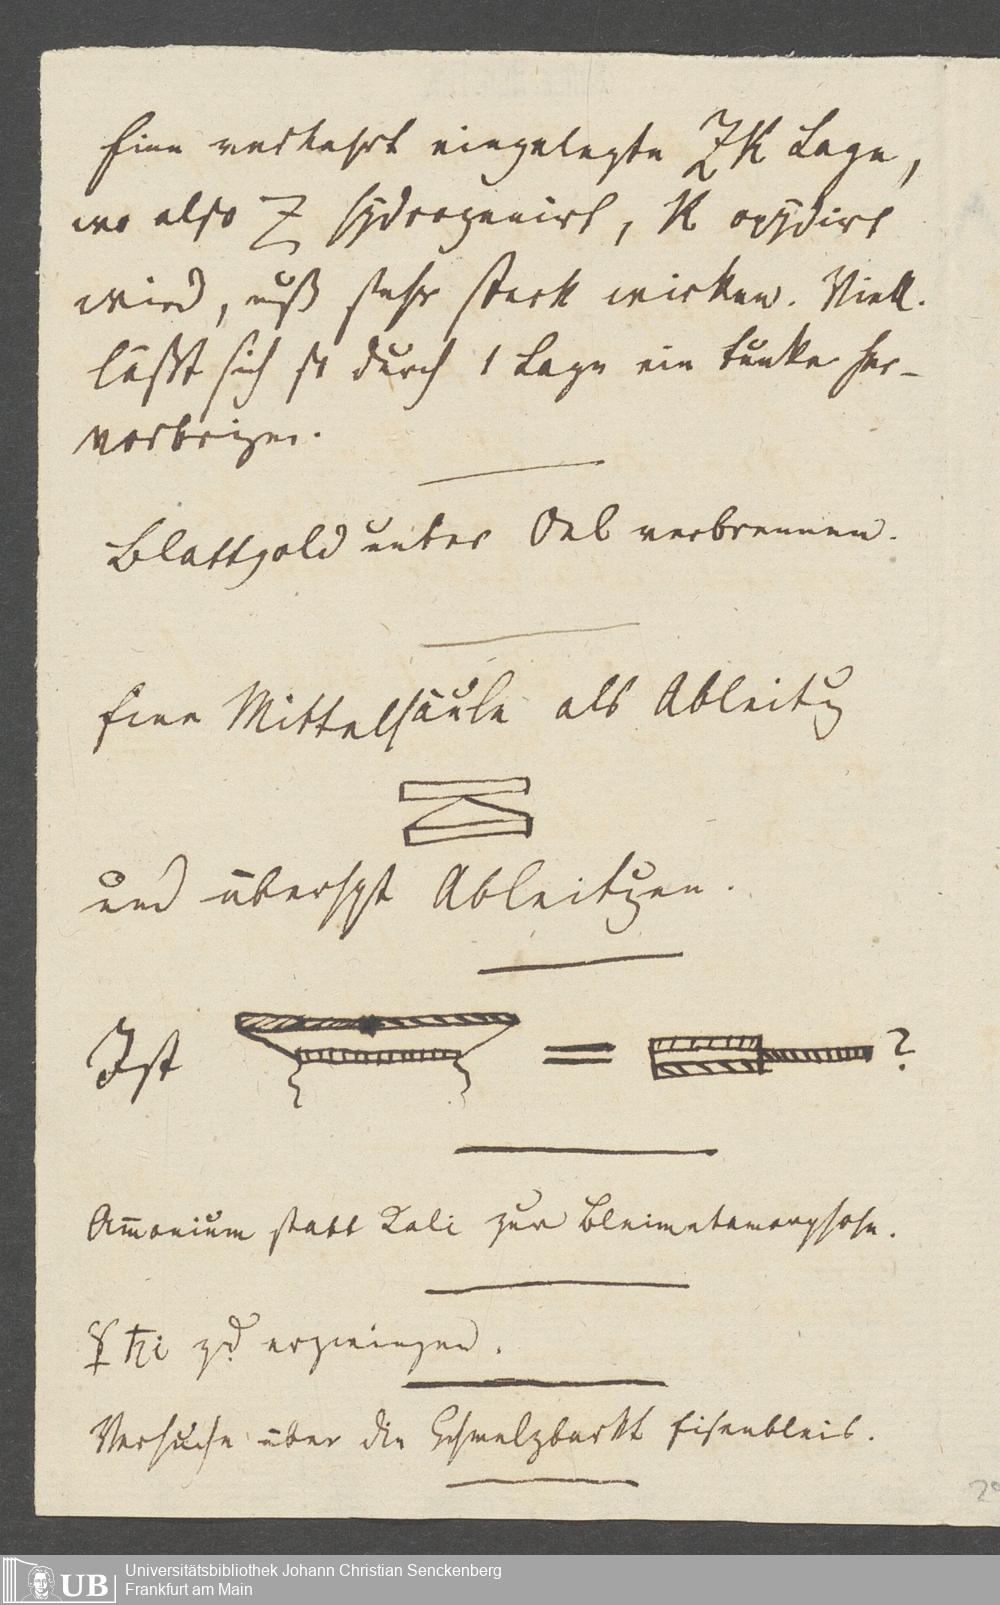 Eine verkehrt eingelegte ZK Lage,
wo also Z hÿdrogenirt, K oxÿdirt
wird, muß sehr stark wirken. Viell.
läßt sich so durch 1 Lage ein Funke her-
vorbringen.
Blattgold unter Oel verbrennen.
Eine Mittelsäule als Ableitg
und überhpt Ableitgen.
Ist = ?
Am̄onium statt Kali zur Bleimetamorphose.
zu erzwingen.
Versuche über die Schmelzbarkt Eisenbleis.
Universitätsbibliothek Johann Christian Senckenberg
Frankfurt am Main
UB